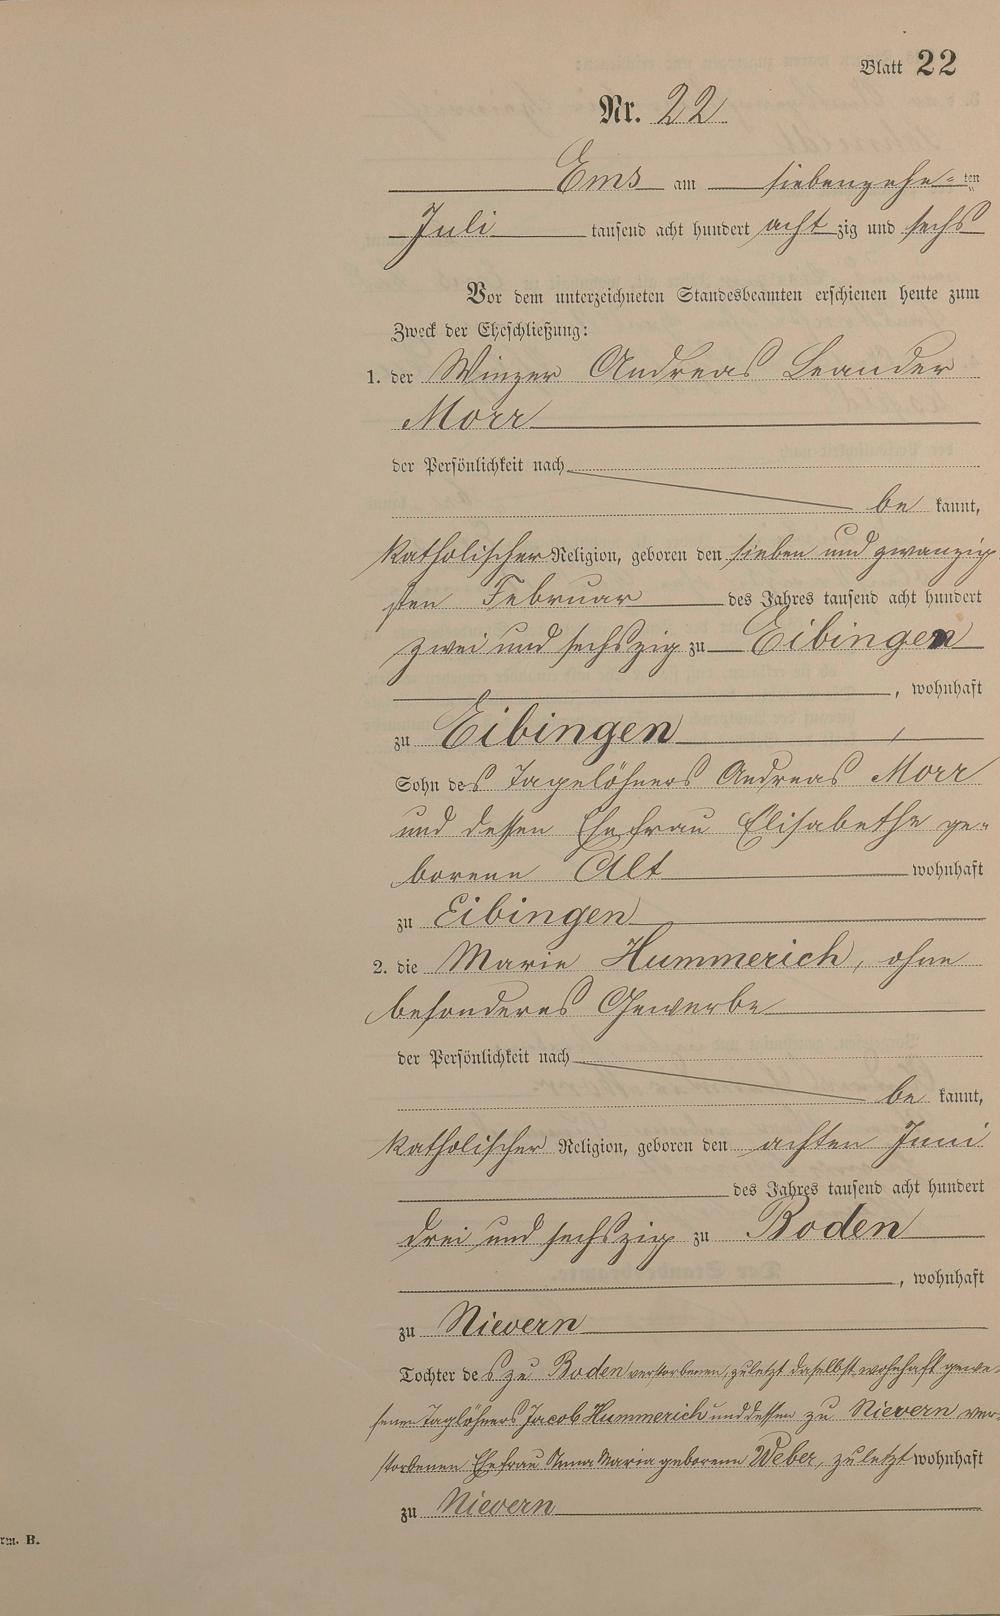 Blatt 22
Nr. 22
Ems am siebenzehnten
Juli tausend acht hundert acht zig und sechs
Vor dem unterzeichneten Standesbeamten erschienen heute zum
Zweck der Eheschließung:
1. der Winzer Andreas Leander
Morr
der Persönlichkeit nach
be kannt,
katholischer Religion, geboren den sieben und zwanzig
sten Februar des Jahres tausend acht hundert
zwei und sechszig zu Eibingen
, wohnhaft
zu Eibingen
Sohn des Tagelöhners Andreas Morr
und dessen Ehefrau Elisabethe ge-
borene Alt wohnhaft
zu Eibingen
2. die Marie Hummerich, ohne
besonderes Gewerbe
der Persönlichkeit nach
be kannt,
katholischer Religion, geboren den achten Juni
des Jahres tausend acht hundert
drei und sechszig zu Boden
, wohnhaft
zu Nievern
Tochter des zu Boden verstorbenen, zuletzt daselbst wohnhaft gewe-
senen Taglöhners Jacob Hummerich und dessen zu Nievern ver-
storbenen Ehefrau Anna Maria geborene Weber, zuletzt wohnhaft
zu Nievern
rm. B.